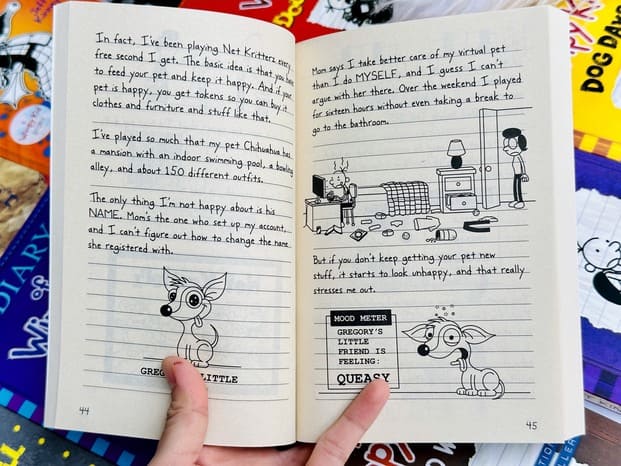 In fact, I've been playing Net Kritterz every
free second I get. The basic idea is that you have
to feed your pet and keep it happy. And if your
pet is happy, you get tokens so you can buy it
clothes and furniture and stuff like that.
I've played so much that my pet Chihuahua has
a mansion with an indoor swimming pool, a bowling
alley, and about 150 different outfits.
The only thing I'm not happy about is his
NAME. Mom's the one who set up my account,
and I can't figure out how to change the name
she registered with.
LITTLE
44
Mom says I take better care of my virtual pet
than I do MYSELF, and I guess I can't
argue with her there. Over the weekend I played
for sixteen hours without even taking a break to
go to the bathroom.
But if you don't keep getting your pet new
stuff, it starts to look unhappy, and that really
stresses me out.
MOOD METER
GREGORY'S
LITTLE
FRIEND IS
FEELING:
QUEASY
45
DIARY
DOG DAYS